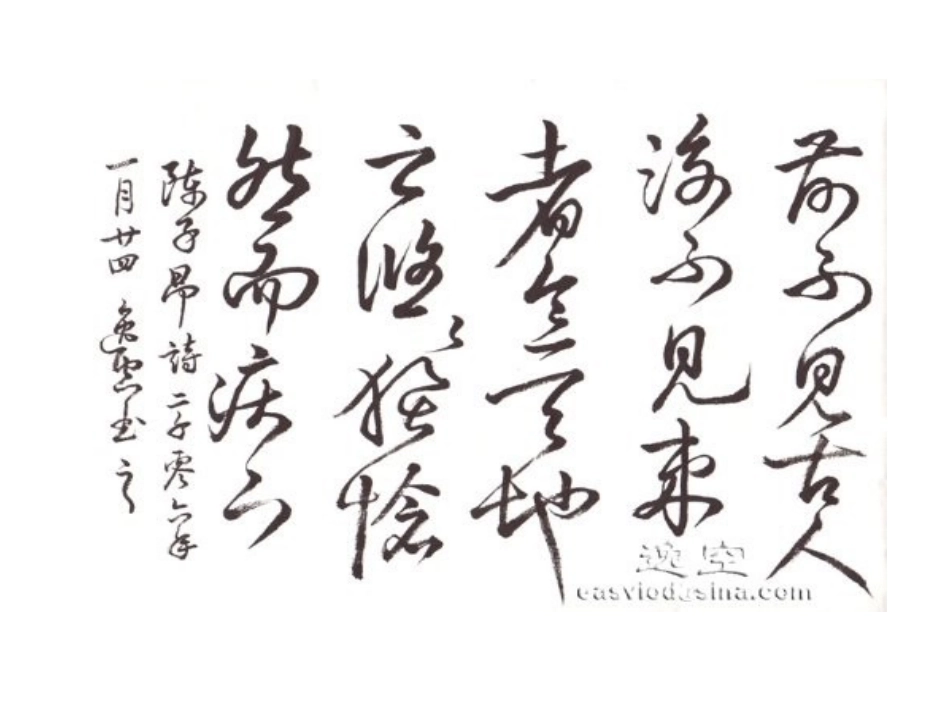 前不見古人
後不見来
者念天地
之悠〻獨愴
然而涕下
陈子昂詩二千零六年
一月廿四 逸空书之
逸空
easviod@sina.com